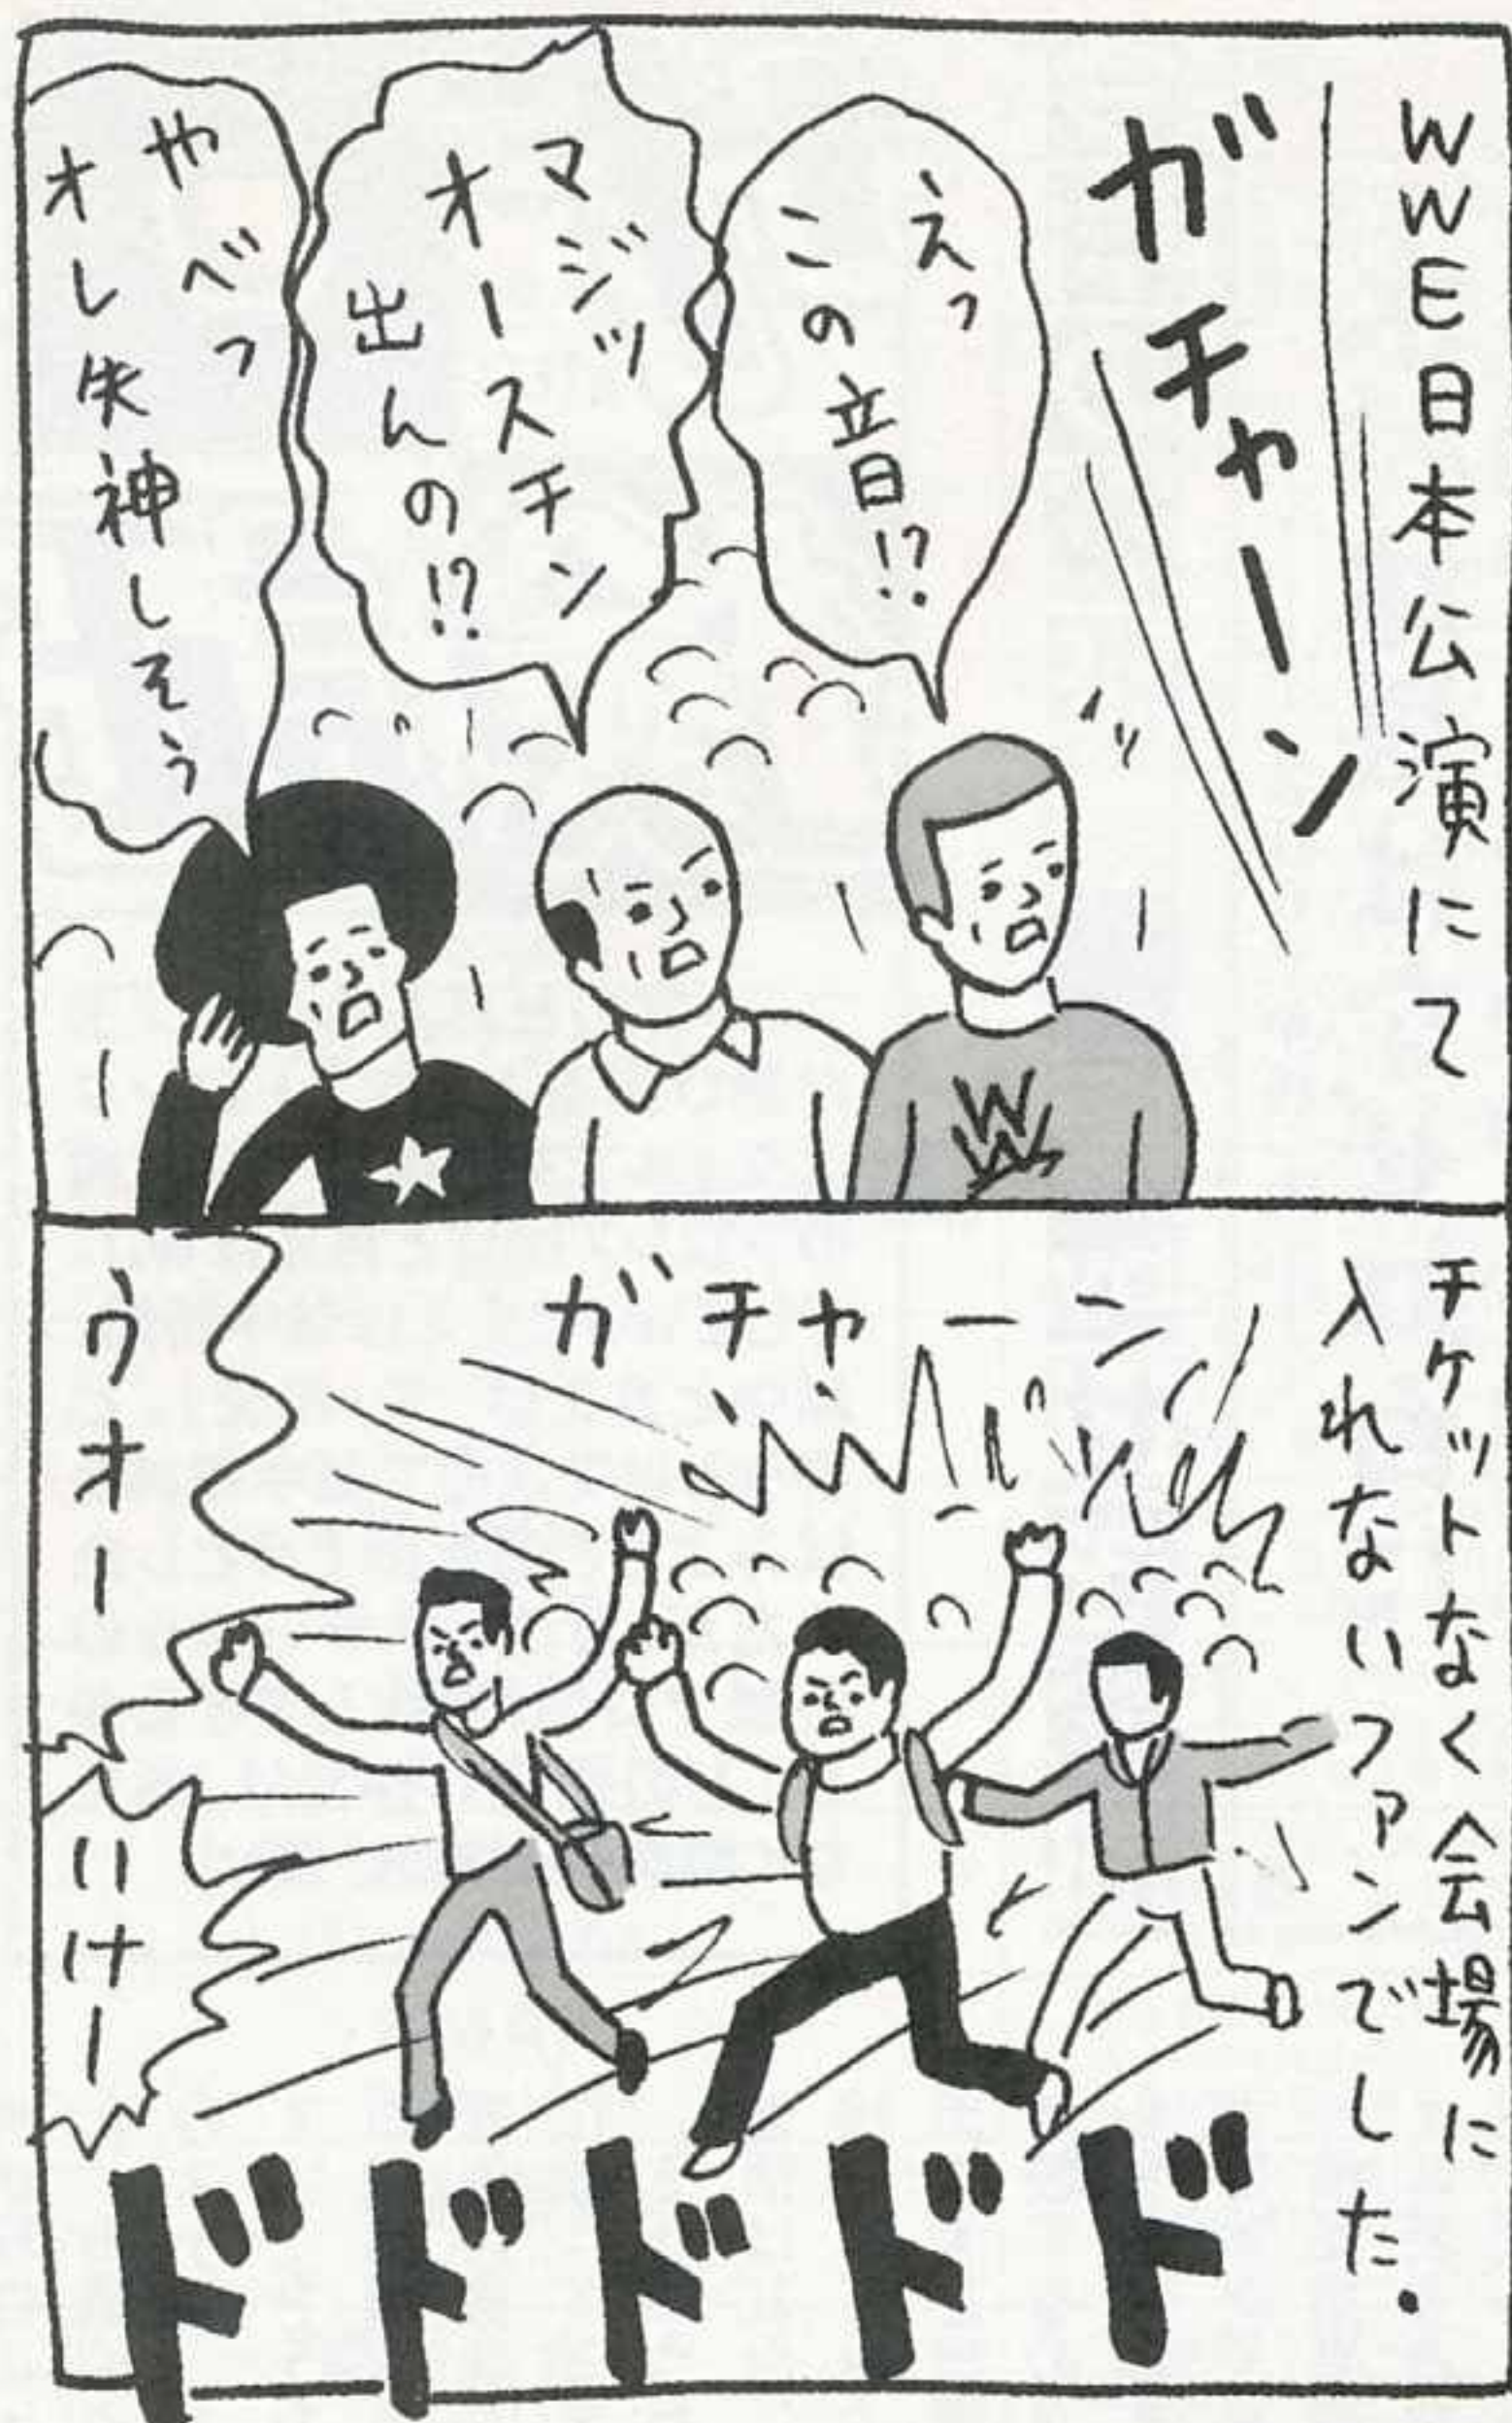 WWE日本公演にて
ガチャーン
えっ
この音!?
マジッ
オースチン
出んの!?
やべっ
オレ失神しそう
WW
チケットなく会場に
入れないファンでした.
ガチャーン
ウオー
いけー
ドドドドド